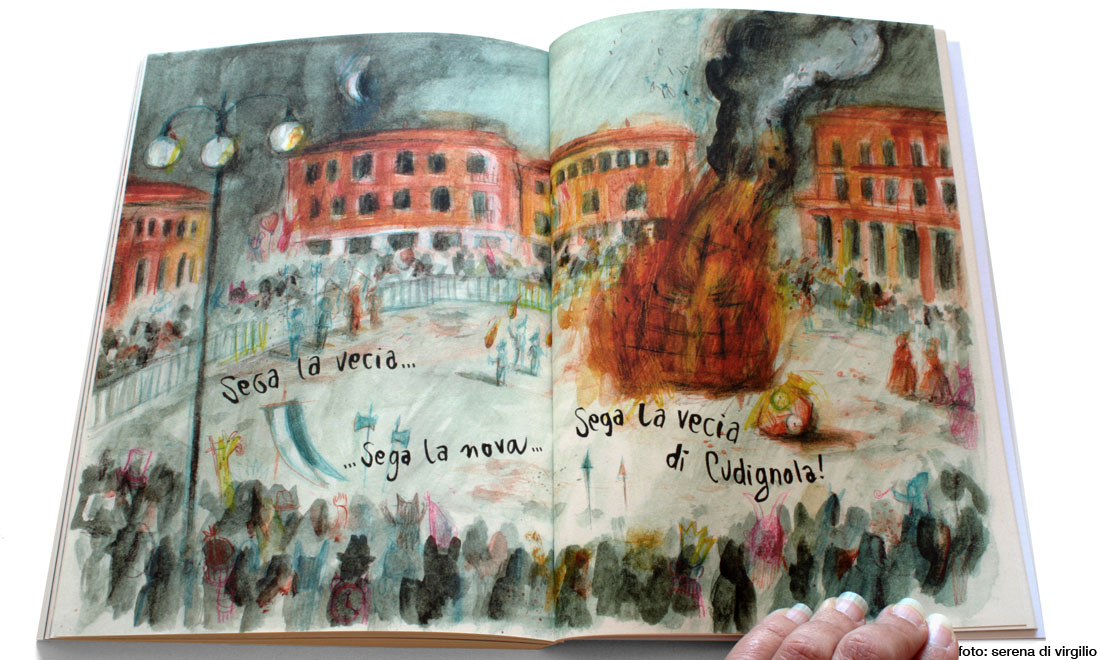 Sega la vecia...
...Sega la nova...
Sega la vecia
di Cudignola!
foto: serena di virgilio